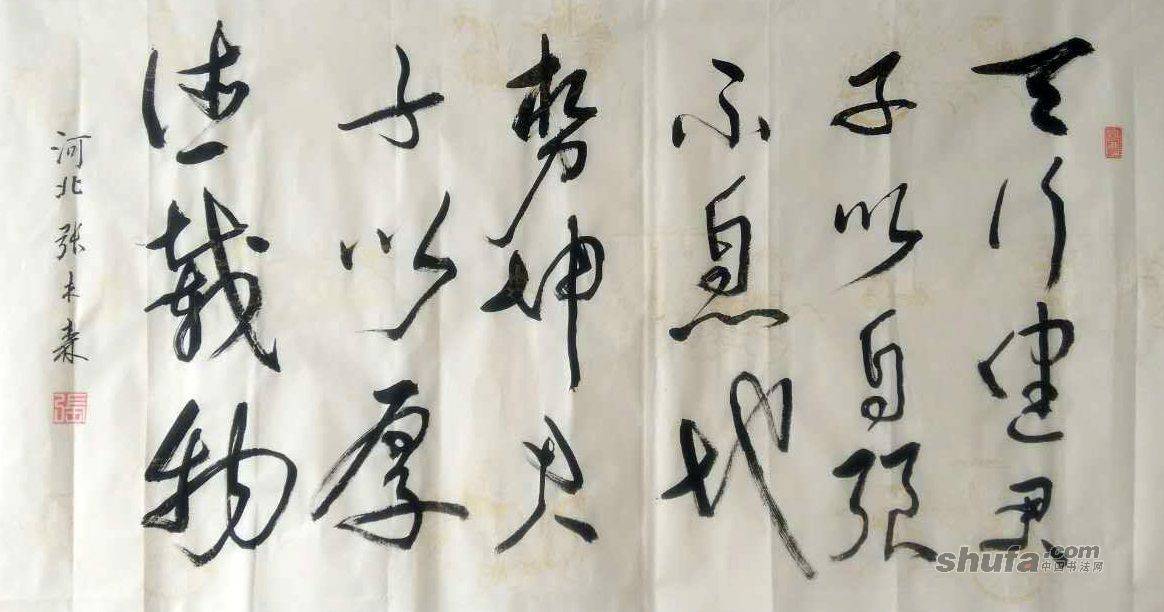 天行健君
子以自强
不息地
势坤君
子以厚
德載物
河北张木
張
shufa.com
中国书法网